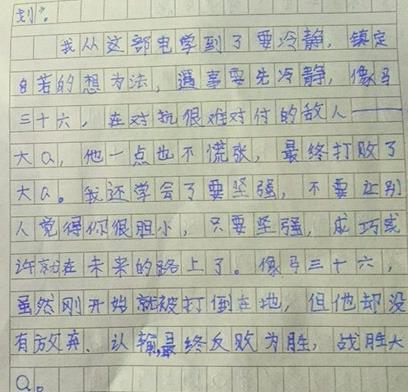 划”。
我从这部电学到了要冷静，镇定
自若的想方法，遇事要先冷静，像马
三十六，在对抗很难对付的敌人——
大Q，他一点也不慌张，最终打败了
大Q。我还学会了要坚强，不要让别
人觉得你很胆小，只要坚强，成巧或
许就在未来的路上了。像马三十六，
虽然刚开始就被打倒在地，但他却没
有放弃、认输，最终反败为胜，战胜大
Q。